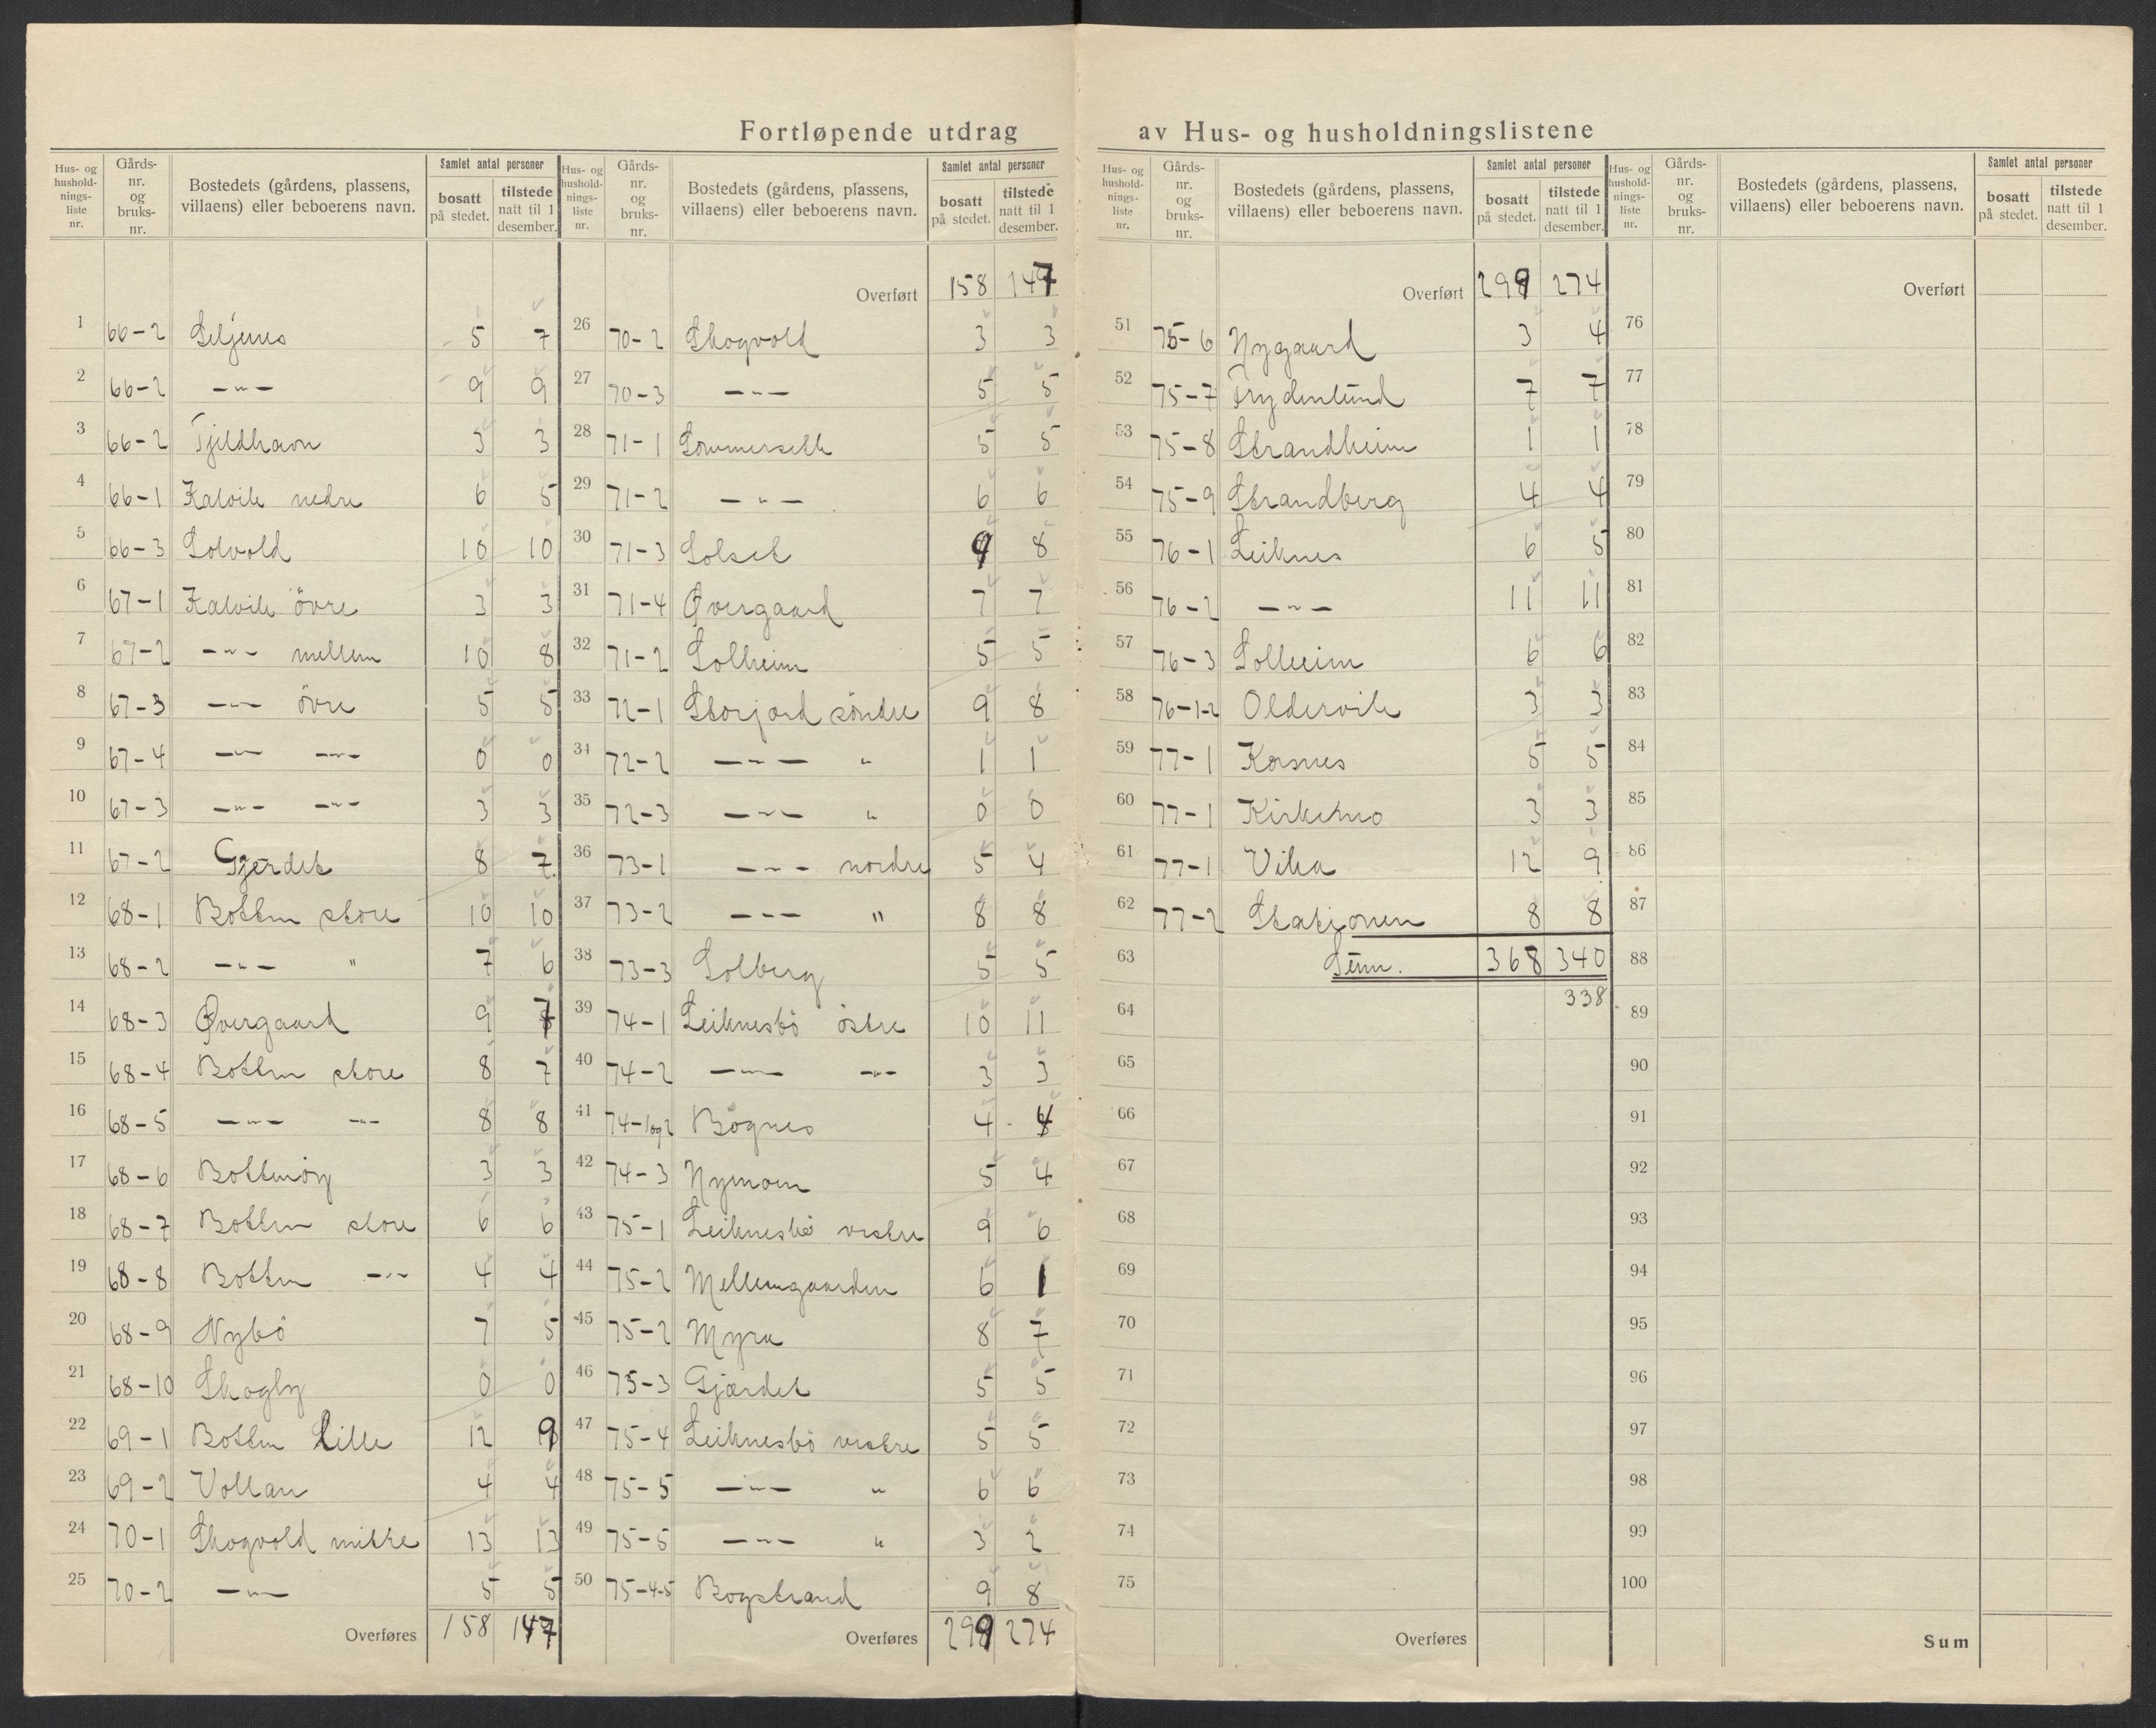 Fortløpende utdrag av Hus- og husholdningslistene
Hus- og husholdningsliste nr. | Gårdsnr. og bruksnr. | Bostedets (gårdens, plassens, villaens) eller beboerens navn. | Samlet antal personer bosatt på stedet. | tilstede natt til 1 desember.
1 66-2 Seljenes 5 7
2 66-2 —„— 9 9
3 66-2 Tjeldhavn 3 3
4 66-1 Kalvik nedre 6 5
5 66-3 Solvold 10 10
6 67-1 Kalvik övre 3 3
7 67-2 —„— mellem 10 8
8 67-3 —„— övre 5 5
9 67-4 —„— —„— 0 0
10 67-3 —„— —„— 3 3
11 67-2 Gjerdet 8 7
12 68-1 Botten store 10 10
13 68-2 —„— " 7 6
14 68-3 Øvergaard 9 7
15 68-4 Botten store 8 7
16 68-5 —„— —„— 8 8
17 68-6 Bottenöy 3 3
18 68-7 Botten store 6 6
19 68-8 Botten —„— 4 4
20 68-9 Nybö 7 5
21 68-10 Skogly 0 0
22 69-1 Botten Lille 12 9
23 69-2 Vollan 4 4
24 70-1 Skogvold mitre 13 13
25 70-2 —„— 5 5
Overføres 158 147
Hus- og husholdningsliste nr. | Gårdsnr. og bruksnr. | Bostedets (gårdens, plassens, villaens) eller beboerens navn. | Samlet antal personer bosatt på stedet. | tilstede natt til 1 desember.
Overført 158 147
26 70-2 Skogvold 3 3
27 70-3 —„— 5 5
28 71-1 Sommersett 5 5
29 71-2 —„— 6 6
30 71-3 Solset 9 8
31 71-4 Øvergaard 7 7
32 71-2 Solheim 5 5
33 72-1 Storjord söndre 9 8
34 72-2 —„— " 1 1
35 72-3 —„— " 0 0
36 73-1 —„— nordre 5 4
37 73-2 —„— " 8 8
38 73-3 Solberg 5 5
39 74-1 Leiknesbö östre 10 11
40 74-2 —„— —„— 3 3
41 74-1og2 Bögnes 4 4
42 74-3 Nymoen 5 4
43 75-1 Leiknesbö vestre 9 6
44 75-2 Mellemgaarden 6 1
45 75-2 Myra 8 7
46 75-3 Gjærdet 5 5
47 75-4 Leiknesbö vestre 5 5
48 75-5 —„— " 6 6
49 75-5 —„— " 3 2
50 75-4-5 Bogstrand 9 8
Overføres 299 274
Hus- og husholdningsliste nr. | Gårdsnr. og bruksnr. | Bostedets (gårdens, plassens, villaens) eller beboerens navn. | Samlet antal personer bosatt på stedet. | tilstede natt til 1 desember.
Overført 299 274
51 75-6 Nygaard 3 4
52 75-7 Frydenlund 7 7
53 75-8 Strandheim 1 1
54 75-9 Strandberg 4 4
55 76-1 Leiknes 6 5
56 76-2 —„— 11 11
57 76-3 Solheim 6 6
58 76-1-2 Oldervik 3 3
59 77-1 Korsnes 5 5
60 77-1 Kirkemo 3 3
61 77-1 Vika 12 9
62 77-2 Stationen 8 8
63 Sum. 368 340
338
64
65
66
67
68
69
70
71
72
73
74
75
Overføres
Hus- og husholdningsliste nr. | Gårdsnr. og bruksnr. | Bostedets (gårdens, plassens, villaens) eller beboerens navn. | Samlet antal personer bosatt på stedet. | tilstede natt til 1 desember.
Overført
76
77
78
79
80
81
82
83
84
85
86
87
88
89
90
91
92
93
94
95
96
97
98
99
100
Sum